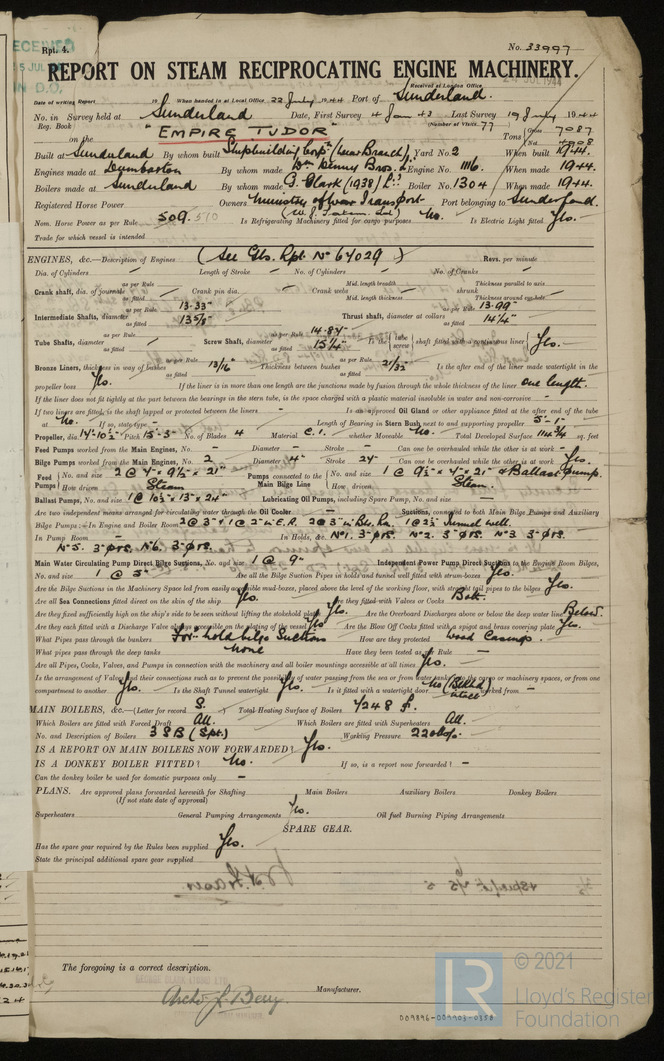 Rpt. 4.
No. 33997
RECEIVED
JUL
IN D.O.
24 JUL 1944
REPORT ON STEAM RECIPROCATING ENGINE MACHINERY.
Received at London Office
Date of writing Report 19 When handed in at Local Office 22 July 1944 Port of Sunderland.
No. in Survey held at Sunderland Date, First Survey 4 Jan 43 Last Survey 19 July 1944
Reg. Book (Number of Visits 77
on the "EMPIRE TUDOR" Tons Gross 7087 Net
Built at Sunderland By whom built Shipbuilding Corpn (Wear Branch) Yard No. 2 When built 1944.
Engines made at Dumbarton By whom made Wm Denny Bros. Engine No. 1116. When made 1944.
Boilers made at Sunderland By whom made G. Clark (1938) Ltd. Boiler No. 1304 When made 1944.
Registered Horse Power Owners Ministry of War Transport Port belonging to Sunderland.
Nom. Horse Power as per Rule 509. 510 Is Refrigerating Machinery fitted for cargo purposes No. Is Electric Light fitted Yes.
Trade for which vessel is intended
ENGINES, &c.—Description of Engines (See Gls. Rpt. No 67029) Revs. per minute
Dia. of Cylinders Length of Stroke No. of Cylinders No. of Cranks
Crank shaft, dia. of journals as per Rule as fitted Crank pin dia. Crank webs Mid. length breadth Mid. length thickness shrunk Thickness parallel to axis Thickness around eye-hole
Intermediate Shafts, diameter as per Rule 13.33" as fitted 13 5/8" Thrust shaft, diameter at collars as per Rule 13.99" as fitted 14 1/4"
Tube Shafts, diameter as per Rule as fitted Screw Shaft, diameter as per Rule 14.84" as fitted 15 1/4" Is the tube screw shaft fitted with a continuous liner Yes.
Bronze Liners, thickness in way of bushes as per Rule as fitted 13/16" Thickness between bushes as per Rule as fitted 21/32" Is the after end of the liner made watertight in the
propeller boss Yes. If the liner is in more than one length are the junctions made by fusion through the whole thickness of the liner one length.
If the liner does not fit tightly at the part between the bearings in the stern tube, is the space charged with a plastic material insoluble in water and non-corrosive -
If two liners are fitted, is the shaft lapped or protected between the liners - Is an approved Oil Gland or other appliance fitted at the after end of the tube
shaft No. If so, state type - Length of Bearing in Stern Bush next to and supporting propeller 5'-1"
Propeller, dia. Pitch 15'-3" No. of Blades 4 Material C.I. whether Moveable No. Total Developed Surface 114 3/4 sq. feet
Feed Pumps worked from the Main Engines, No. - Diameter - Stroke - Can one be overhauled while the other is at work -
Bilge Pumps worked from the Main Engines, No. 2 Diameter 4" Stroke 24" Can one be overhauled while the other is at work Yes.
Feed Pumps No. and size 2 @ 7" x 9 1/2" x 21" How driven Steam Pumps connected to the Main Bilge Line No. and size 1 @ 9 1/2" x 7" x 21" @ Ballast pump. How driven Steam.
Ballast Pumps, No. and size 1 @ 10 1/2" x 13" x 24" Lubricating Oil Pumps, including Spare Pump, No. and size -
Are two independent means arranged for circulating water through the Oil Cooler Suctions, connected to both Main Bilge Pumps and Auxiliary
Bilge Pumps :—In Engine and Boiler Room 2 @ 3" & 1 @ 2" in E.R. 2 @ 3" in Blr. Rm. 1 @ 2 1/2" Tunnel well.
In Pump Room - In Holds, &c. No 1. 3" P&S. No 2. 3" P&S. No 3. 3" P&S.
No 5. 3" P&S. No 6. 3" P&S.
Main Water Circulating Pump Direct Bilge Suctions, No. and size 1 @ 9" Independent Power Pump Direct Suctions to the Engine Room Bilges,
No. and size 1 @ 5" Are all the Bilge Suction Pipes in holds and tunnel well fitted with strum-boxes Yes.
Are the Bilge Suctions in the Machinery Space led from easily accessible mud-boxes, placed above the level of the working floor, with straight tail pipes to the bilges Yes.
Are all Sea Connections fitted direct on the skin of the ship Yes. Are they fitted with Valves or Cocks Both.
Are they fixed sufficiently high on the ship's side to be seen without lifting the stokehold plates Yes. Are the Overboard Discharges above or below the deep water line Below.
Are they each fitted with a Discharge Valve always accessible on the plating of the vessel Yes. Are the Blow Off Cocks fitted with a spigot and brass covering plate Yes.
What Pipes pass through the bunkers Forwd hold bilge suctions How are they protected Wood Casings.
What pipes pass through the deep tanks None Have they been tested as per Rule -
Are all Pipes, Cocks, Valves, and Pumps in connection with the machinery and all boiler mountings accessible at all times Yes.
Is the arrangement of Valves and their connections such as to prevent the possibility of water passing from the sea or from water tanks into the cargo or machinery spaces, or from one
compartment to another Yes. Is the Shaft Tunnel watertight Yes. Is it fitted with a watertight door No worked from -
MAIN BOILERS, &c.—(Letter for record S. ) Total Heating Surface of Boilers 7248 f.
Which Boilers are fitted with Forced Draft All. Which Boilers are fitted with Superheaters All.
No. and Description of Boilers 3 SB (Spt.) Working Pressure 220 lbs.
IS A REPORT ON MAIN BOILERS NOW FORWARDED? Yes.
IS A DONKEY BOILER FITTED? No. If so, is a report now forwarded? -
Can the donkey boiler be used for domestic purposes only -
PLANS. Are approved plans forwarded herewith for Shafting Main Boilers Auxiliary Boilers Donkey Boilers
(If not state date of approval)
Superheaters General Pumping Arrangements Yes. Oil fuel Burning Piping Arrangements
SPARE GEAR.
Has the spare gear required by the Rules been supplied Yes.
State the principal additional spare gear supplied
The foregoing is a correct description.
GEORGE CLARK (1938) LTD.
Manufacturer.
© 2021
LR
Lloyd's Register
Foundation
009896-009903-0358